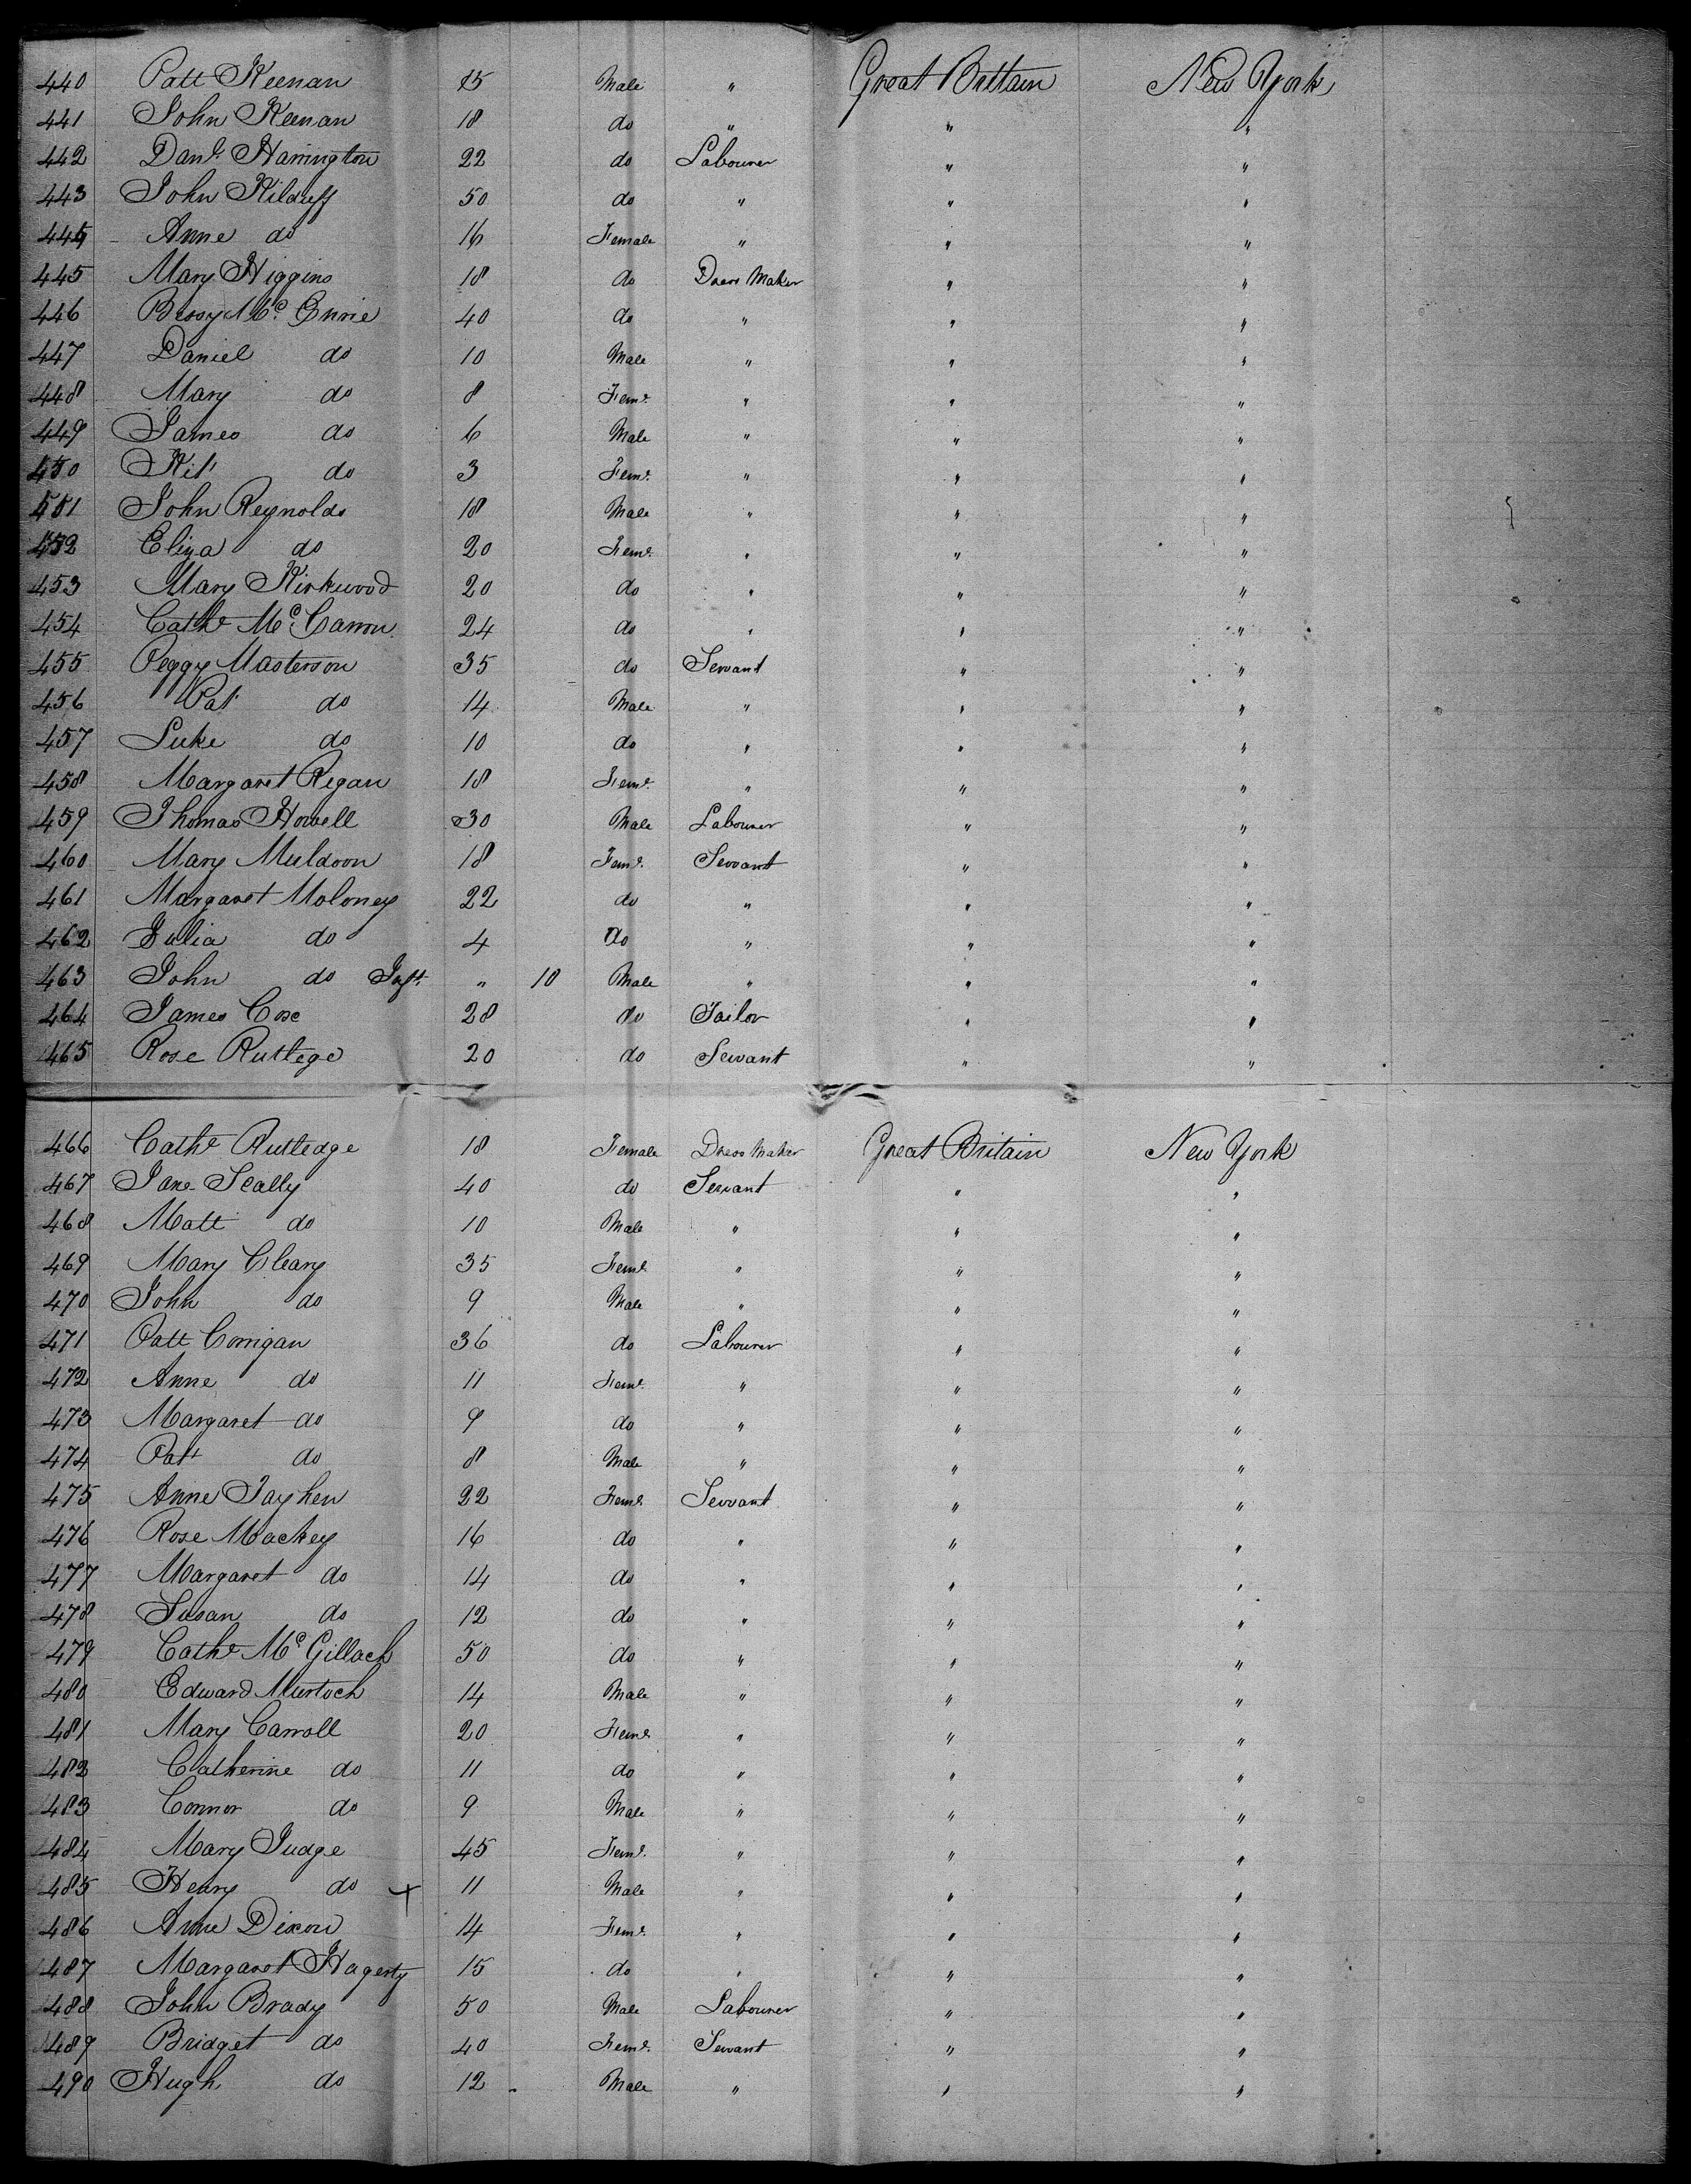 440 Patt Keenan 15 Male " Great Brittain New York
441 John Keenan 18 do " " "
442 Danl. Harrington 22 do Labourer " "
443 John Kilduff 50 do " " "
444 Anne do 16 Female " " "
445 Mary Higgins 18 do Dress Maker " "
446 Bessy Mc. 40 do " " "
447 Daniel do 10 Male " " "
448 Mary do 8 Feme. " " "
449 James do 6 Male " " "
450 Kit do 3 Feme. " " "
451 John Reynolds 18 Male " " "
452 Eliza do 20 Feme. " " "
453 Mary Kirkwood 20 do " " "
454 Cathe Mc. Carron 24 do " " "
455 Peggy Masterson 35 do Servant " "
456 Pat do 14 Male " " "
457 Luke do 10 do " " "
458 Margaret Regan 18 Feme. " " "
459 Thomas Howell 30 Male Labourer " "
460 Mary Muldoon 18 Feme. Servant " "
461 Margaret Moloney 22 do " " "
462 Julia do 4 do " " "
463 John do Inft. " 10 Male " " "
464 James Cox 28 do Tailor " "
465 Rose Rutlege 20 do Servant " "
466 Cathe Rutledge 18 Female Dress Maker Great Britain New York
467 Jane Scally 40 do Servant " "
468 Matt do 10 Male " " "
469 Mary Cleary 35 Feme. " " "
470 John do 9 Male " " "
471 Patt Corrigan 36 do Labourer " "
472 Anne do 11 Feme. " " "
473 Margaret do 9 do " " "
474 Patt do 8 Male " " "
475 Anne 22 Feme. Servant " "
476 Rose Mackey 16 do " " "
477 Margaret do 14 do " " "
478 Susan do 12 do " " "
479 Cathe Mc. Gillach 50 do " " "
480 Edward Murtoch 14 Male " " "
481 Mary Carroll 20 Feme. " " "
482 Catherine do 11 do " " "
483 Connor do 9 Male " " "
484 Mary Judge 45 Feme. " " "
485 Henry do + 11 Male " " "
486 Anne Dixon 14 Feme. " " "
487 Margaret Hagerty 15 do " " "
488 John Brady 50 Male Labourer " "
489 Bridget do 40 Feme. Servant " "
490 Hugh do 12 Male " " "